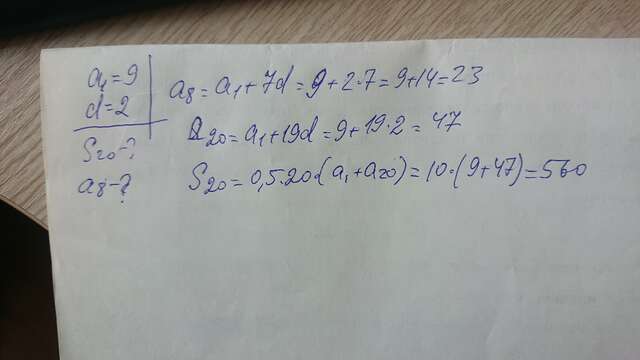 a₁=9
d=2
S₂₀-?
a₈-?
a₈=a₁+7d=9+2·7=9+14=23
a₂₀=a₁+19d=9+19·2=47
S₂₀=0,5·20·(a₁+a₂₀)=10·(9+47)=560